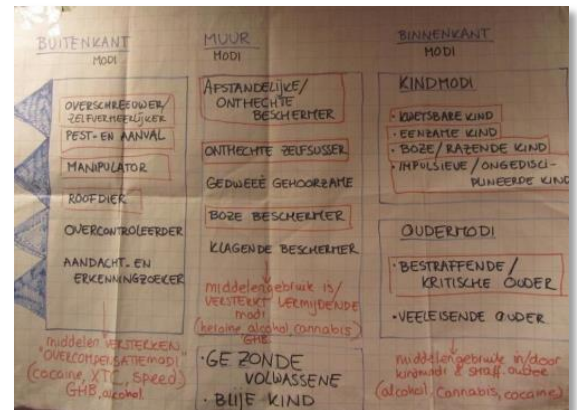 BUITENKANT
MODI
OVERSCHREEUWER/
ZELFVERHEERLIJKER
PEST- EN AANVAL
MANIPULATOR
ROOFDIER
OVERCONTROLEERDER
AANDACHT- EN
ERKENNINGZOEKER
middelen VERSTERKEN
"OVERCOMPENSATIEMODI"
(cocaine, XTC, speed)
GHB, alcohol
MUUR
MODI
AFSTANDELIJKE/
ONTHECHTE
BESCHERMER
ONTHECHTE ZELFSUSSER
GEDWEEË GEHOORZAME
BOZE BESCHERMER
KLAGENDE BESCHERMER
middelengebruik is/
VERSTERKT VERMIJDENDE
modi
(heroine, alcohol, cannabis)
GHB
· GEZONDE
VOLWASSENE
· BLIJE KIND
BINNENKANT
MODI
KINDMODI
· KWETSBARE KIND
· EENZAME KIND
· BOZE/ RAZENDE KIND
· IMPULSIEVE/ONGEDISCI-
PLINEERDE KIND
OUDERMODI
· BESTRAFFENDE/
KRITISCHE OUDER
· VEELEISENDE OUDER
middelengebruik in/door
kindmodi & straff. ouder
(alcohol, cannabis, cocaine)